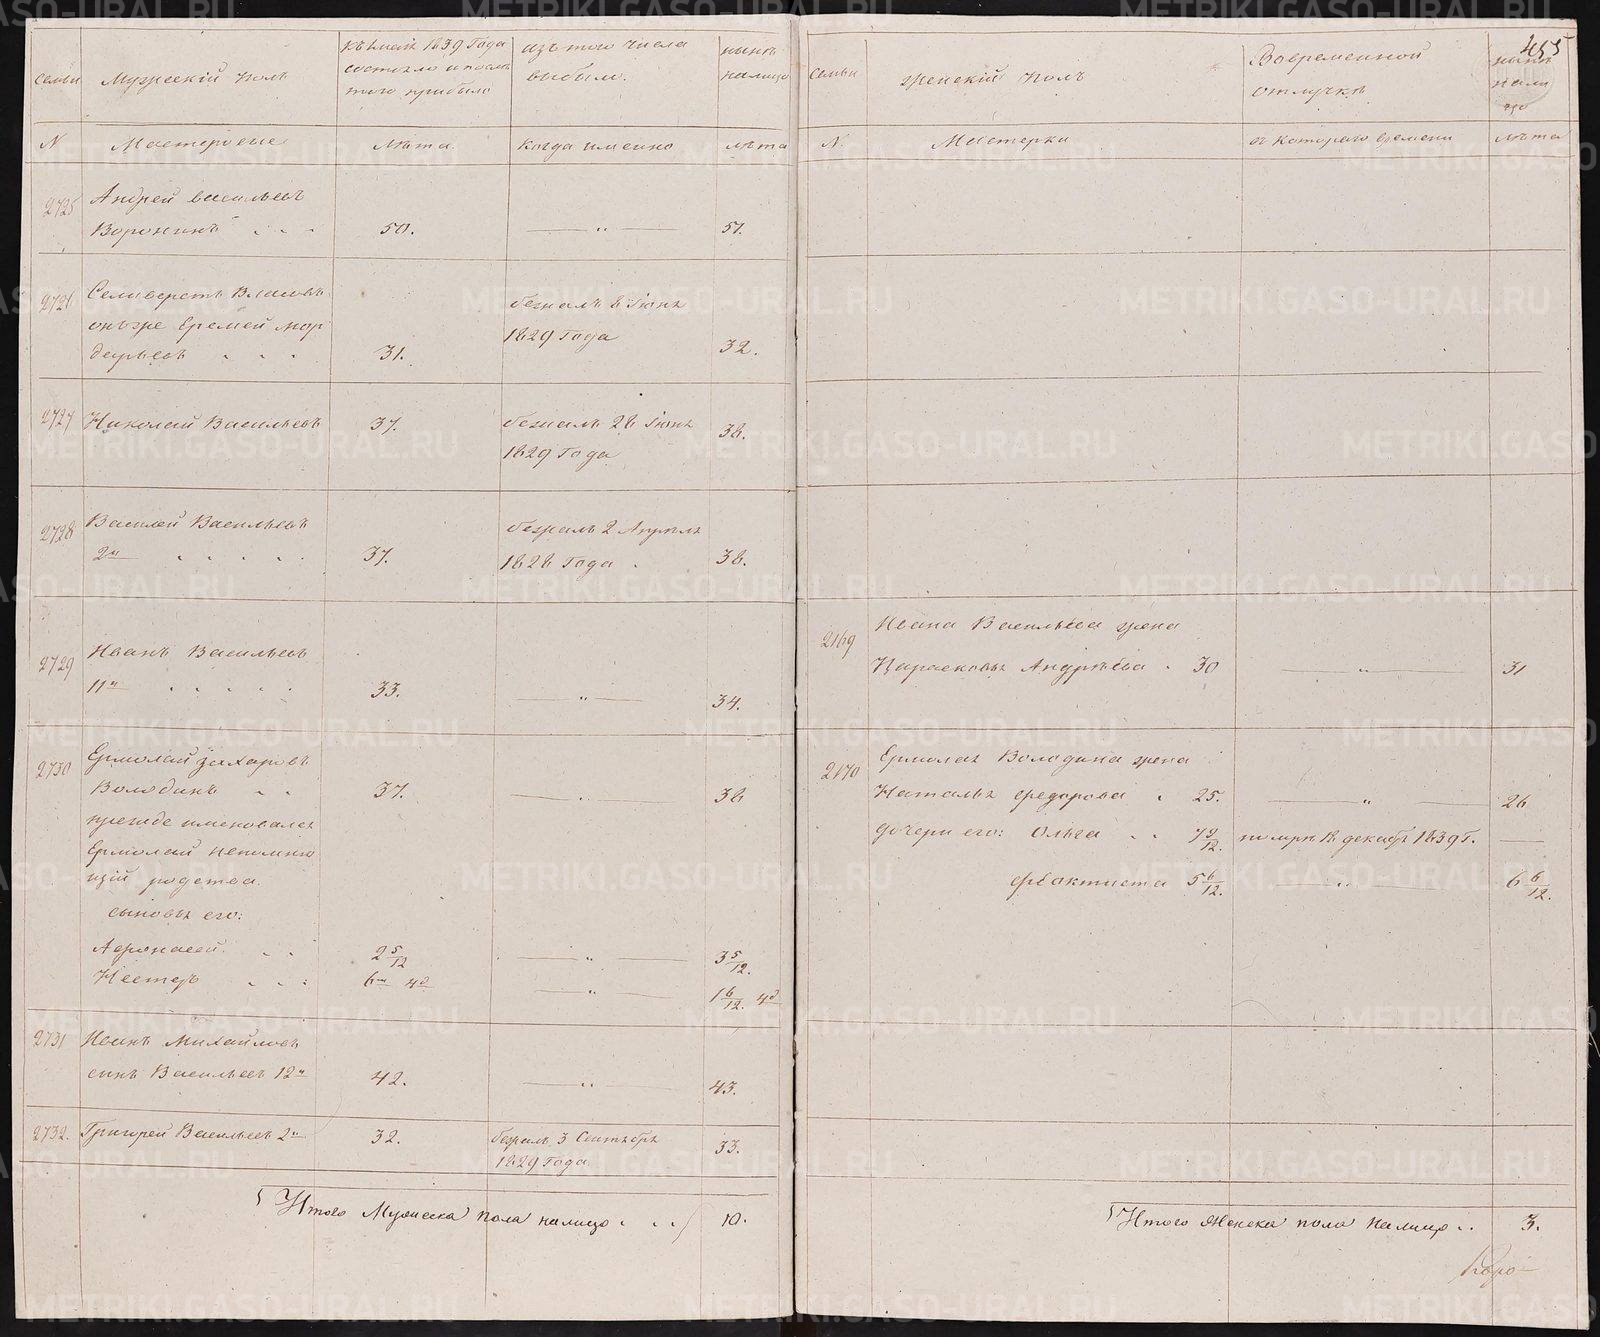 семьи
Мужескій полъ
къ 1 маія 1839 года
состояло и после
того прибыло
изъ того числа
выбыло.
нынѣ
налицо
N
Мастеровые
Лѣта.
когда именно
лѣта
2725
Андрей васильевъ
Воронинъ 50. — " — 51.
2726
Селиверстъ Власовъ
онъ же Еремей Мор
дарьевъ 31.
бежалъ 8 Іюня
1829 Года
32.
2727
Николай Васильевъ 37.
бежалъ 28 Іюня
1829 Года
38.
2728
Василей Васильевъ
2й 37.
бежалъ 2 Апреля
1828 Года
38.
2729
Иванъ Васильевъ
11й 33. — " — 34.
2730
Ермолай Захаровъ
Володинъ 37. — " — 38
прежде именовался
Ермолай непомня
щій родства.
сыновья его:
Афонасей. 2 5/12 — " — 3 5/12.
Нестеръ 6м 4д — " — 1 6/12. 4д
2731
Иванъ Михайловъ
сынъ Васильевъ 12й 42. — " — 43.
2732.
Григорей Васильевъ 2й 32.
бежалъ 3 Сентября
1829 Года
33.
Итого Мужеска пола налицо 10.
455
семьи
Женскій полъ
Вовременной
отлучкѣ
нынѣ
нали
цо
N.
Мастерки
съ котораго времени
лѣта
2169
Ивана Васильева жена
Парасковья Андрѣева 30 — " — 31
2170
Ермолая Володина жена
Наталья федорова 25. — " — 26
дочери его: Ольга 7 9/12. померла 18 декабря 1839 г. —
феоктиста 5 6/12. — " — 6 6/12.
Итого Женска пола налицо 3.
METRIKI.GASO-URAL.RU